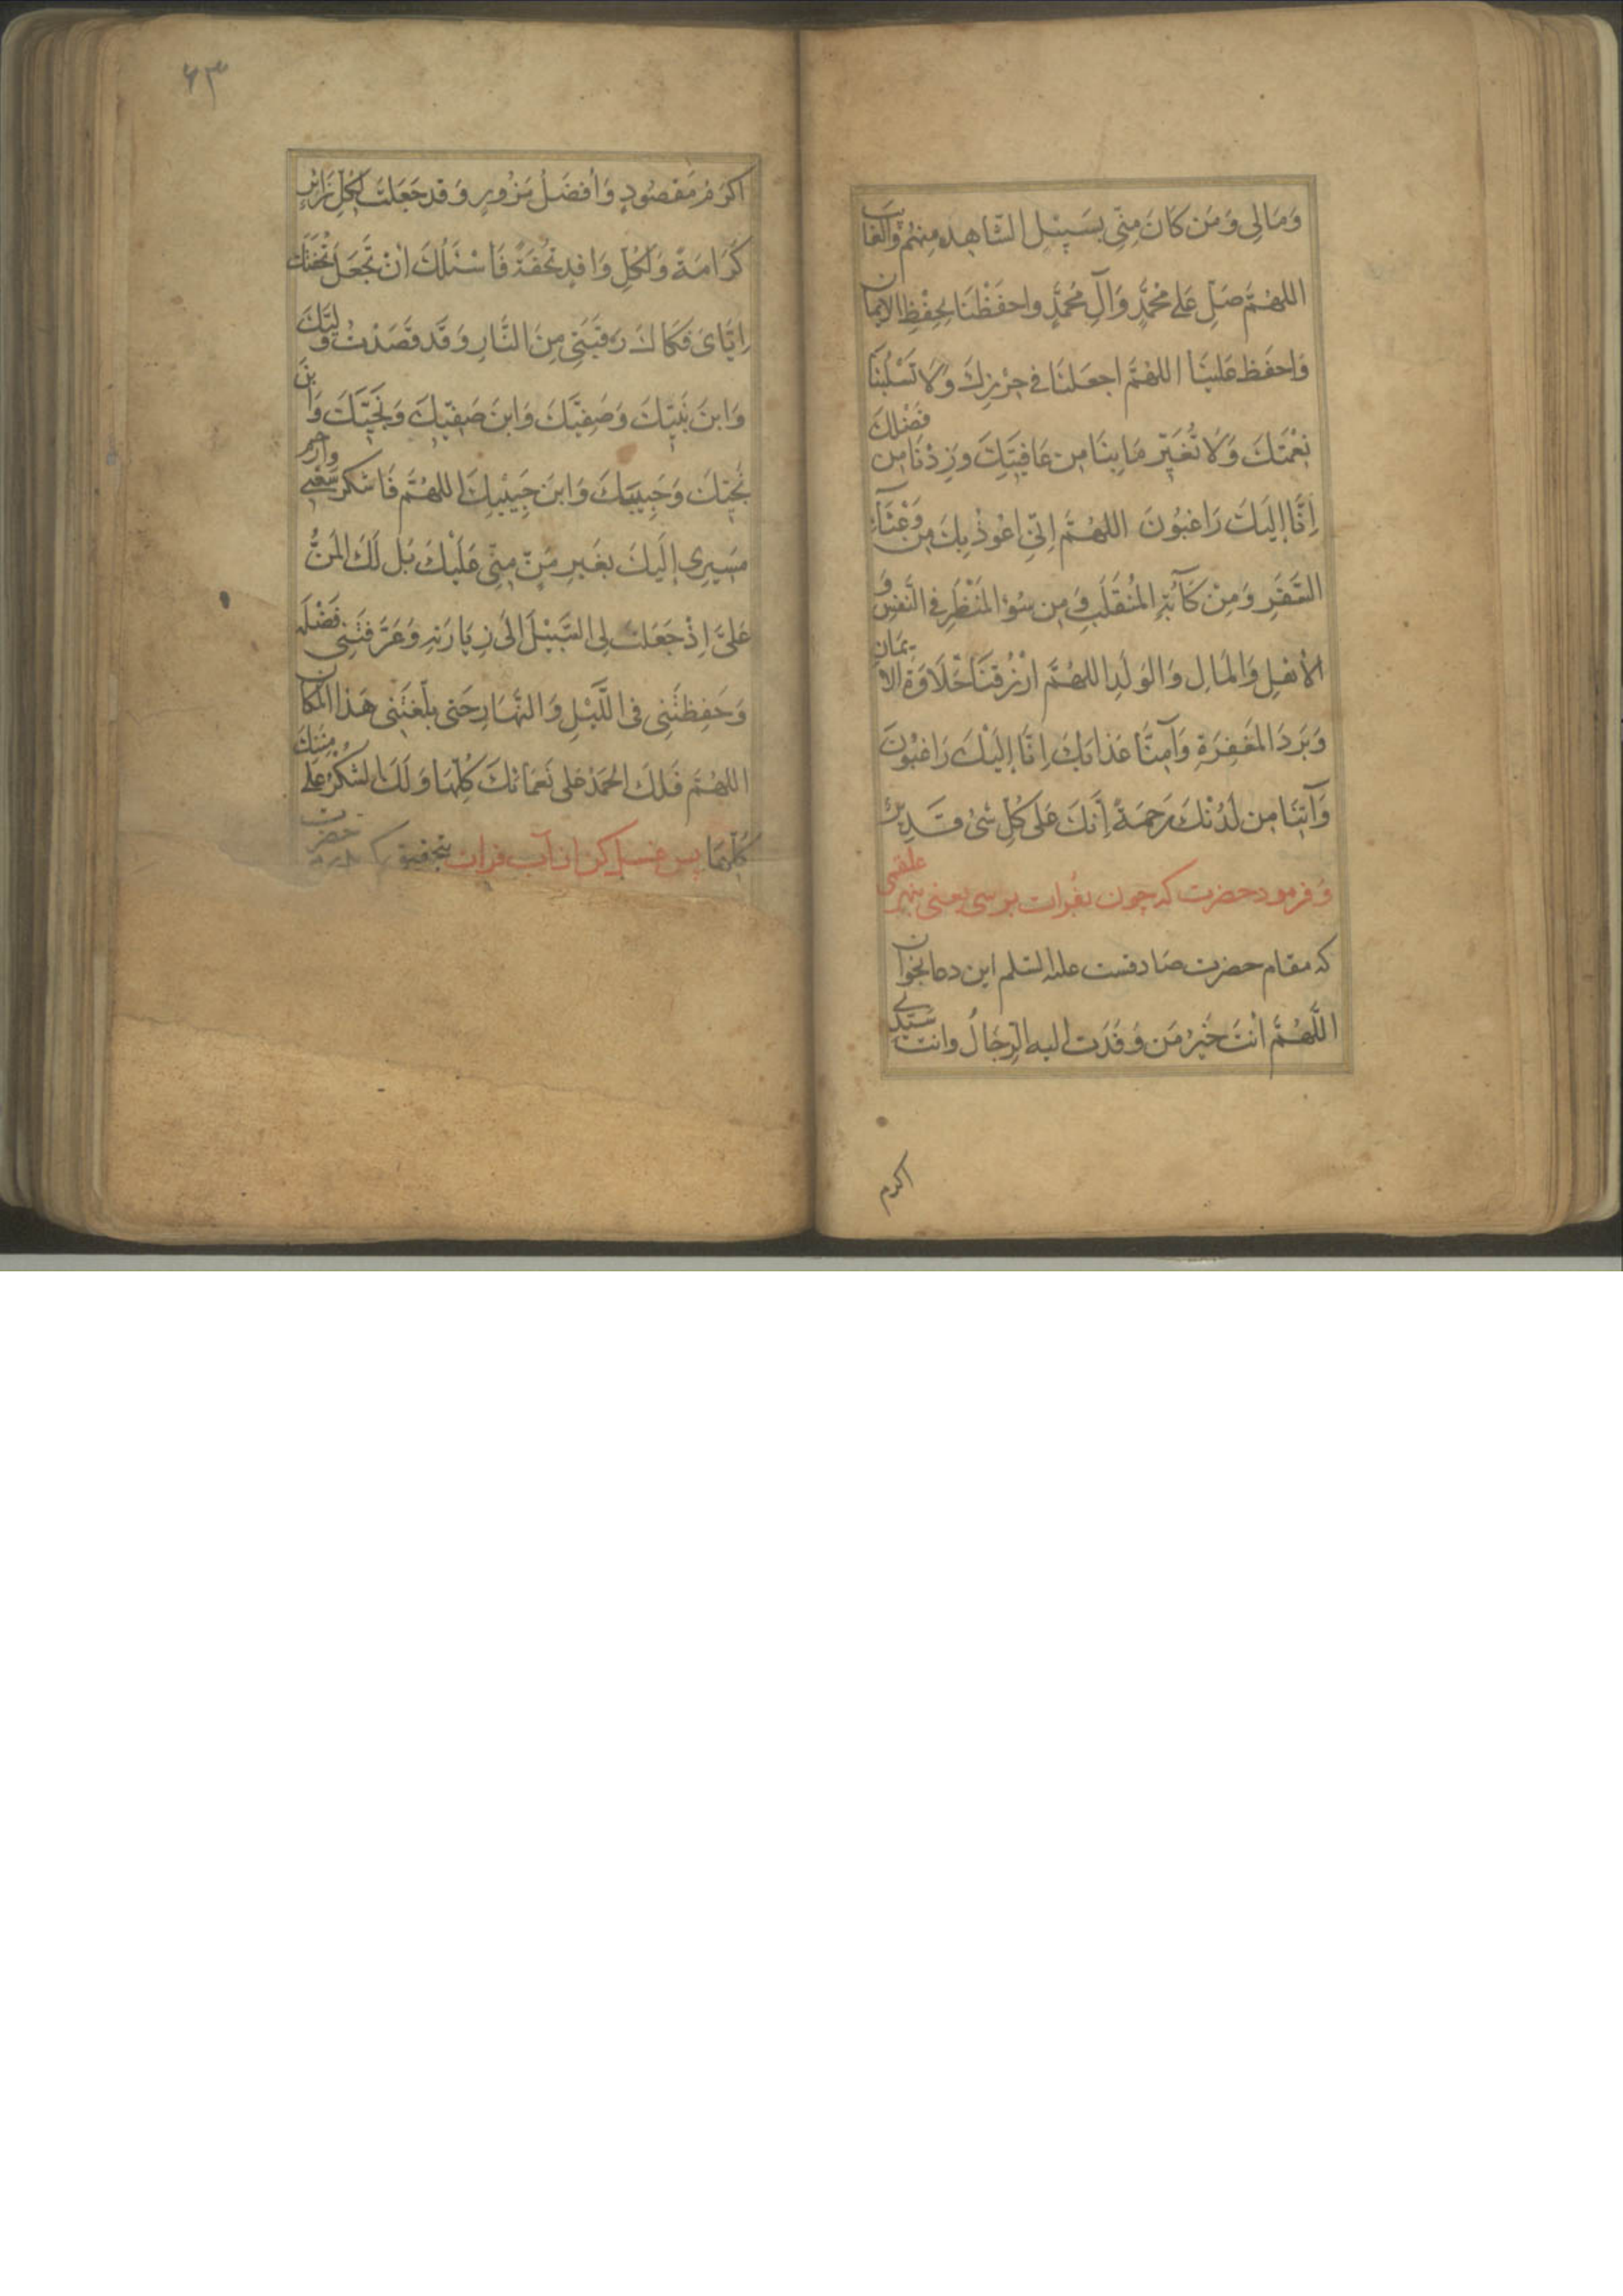 وَمَالِی وَمَن كَانَ مِنِّی بِسَبِيْلِ الشَّاهِدِ مِنْهُمْ وَالْغَایِبِ
اللهُمَّ صَلِّ عَلی مُحَمَّدٍ وَآلِ مُحَمَّدٍ واحفَظْنَا بِحِفْظِ الايمان
وَاحفَظ عَلَينَا اللهُمَّ اجعَلنَا فی حِرْزِكَ وَلَا تَسْلُبْنَا
نِعْمَتَكَ وَلَا تُغَيِّر مَا بِنَا مِن عَافِيَتِكَ وَزِدْنَا مِن فَضْلِكَ
اِنَّا اِلَيكَ رَاغبُونَ اللهُمَّ اِنّی اعُوذُ بِكَ مِن وَعْثَآءِ
السَّفَرِ وَمِنْ كَآبَةِ المُنْقَلَبِ وَمِن سُوءِ المَنْظَرِ فی النَّفسِ وَ
الاَهلِ وَالمَالِ وَالوَلَدِ اللهُمَّ ارْزُقنَا حَلَاوَةَ الایمَانِ
وَبَردَ المَغفِرَةِ وَآمِنَّا عَذابَكَ اِنَّا اِلَيْكَ رَاغبُونَ
وَآتِنَا مِن لَدُنْكَ رَحمَةً اِنَّكَ عَلی كُلِّ شَیْ قَدِيرٌ
وَ فرمود حضرت كه چون بفرات برسی یعنی بنهر علقمی
كه مقام حضرت صادقست علیه السلم این دعا بخوان
اللَّهُمَّ انتَ خَيرُ مَن وَفَدَت اليه الرِّجَالُ وانت سَيِّدِی
اكرم
۶۳
اكرَمُ مَقصُودٍ وَاَفضَلُ مَزُورٍ وَقد جَعَلتَ لِكُلِّ زَائِرٍ
كَرَامَةً وَلِكُلِّ وَافِدٍ تُحْفَةً فَاَسْئَلُكَ اَنْ تَجعَلَ تُحْفَتَكَ
اِيَّایَ فَكَاكَ رَقَبَتِی مِنَ النَّارِ وَقَد قَصَدْتُ وَلِيَّكَ
وَابنَ نَبِيِّكَ وَصَفِيَّكَ وَابنَ صَفِيِّكَ وَنَجِيَّكَ وَابنَ
نَجِيِّكَ وَحَبِيبَكَ وَابنَ حَبِيْبِكَ اللهُمَّ فَاشكر سَعْیِی وارحم
مَسِيرِی اِلَيكَ بِغَيرِ مَنٍّ مِنِّی عَلَيْكَ بَل لَكَ المَنُّ
عَلَیَّ اِذْ جَعَلتَ لِی السَّبِيْلَ اِلی زِيَارَتِهِ وَعَرَّفتَنِی فَضْلَهُ
وَحَفِظتَنِی فی اللَّيْلِ وَالنَّهَارِ حَتی بلَّغتَنی هَذا المَكَان
اللهُمَّ فَلَكَ الحَمدُ عَلی نَعمَائكَ كُلِّهَا وَلَكَ الشُكرُ عَلی مِنَنِكَ
كُلِّهَا پس غسل كن از آب فرات بتحقیق كه حضرت